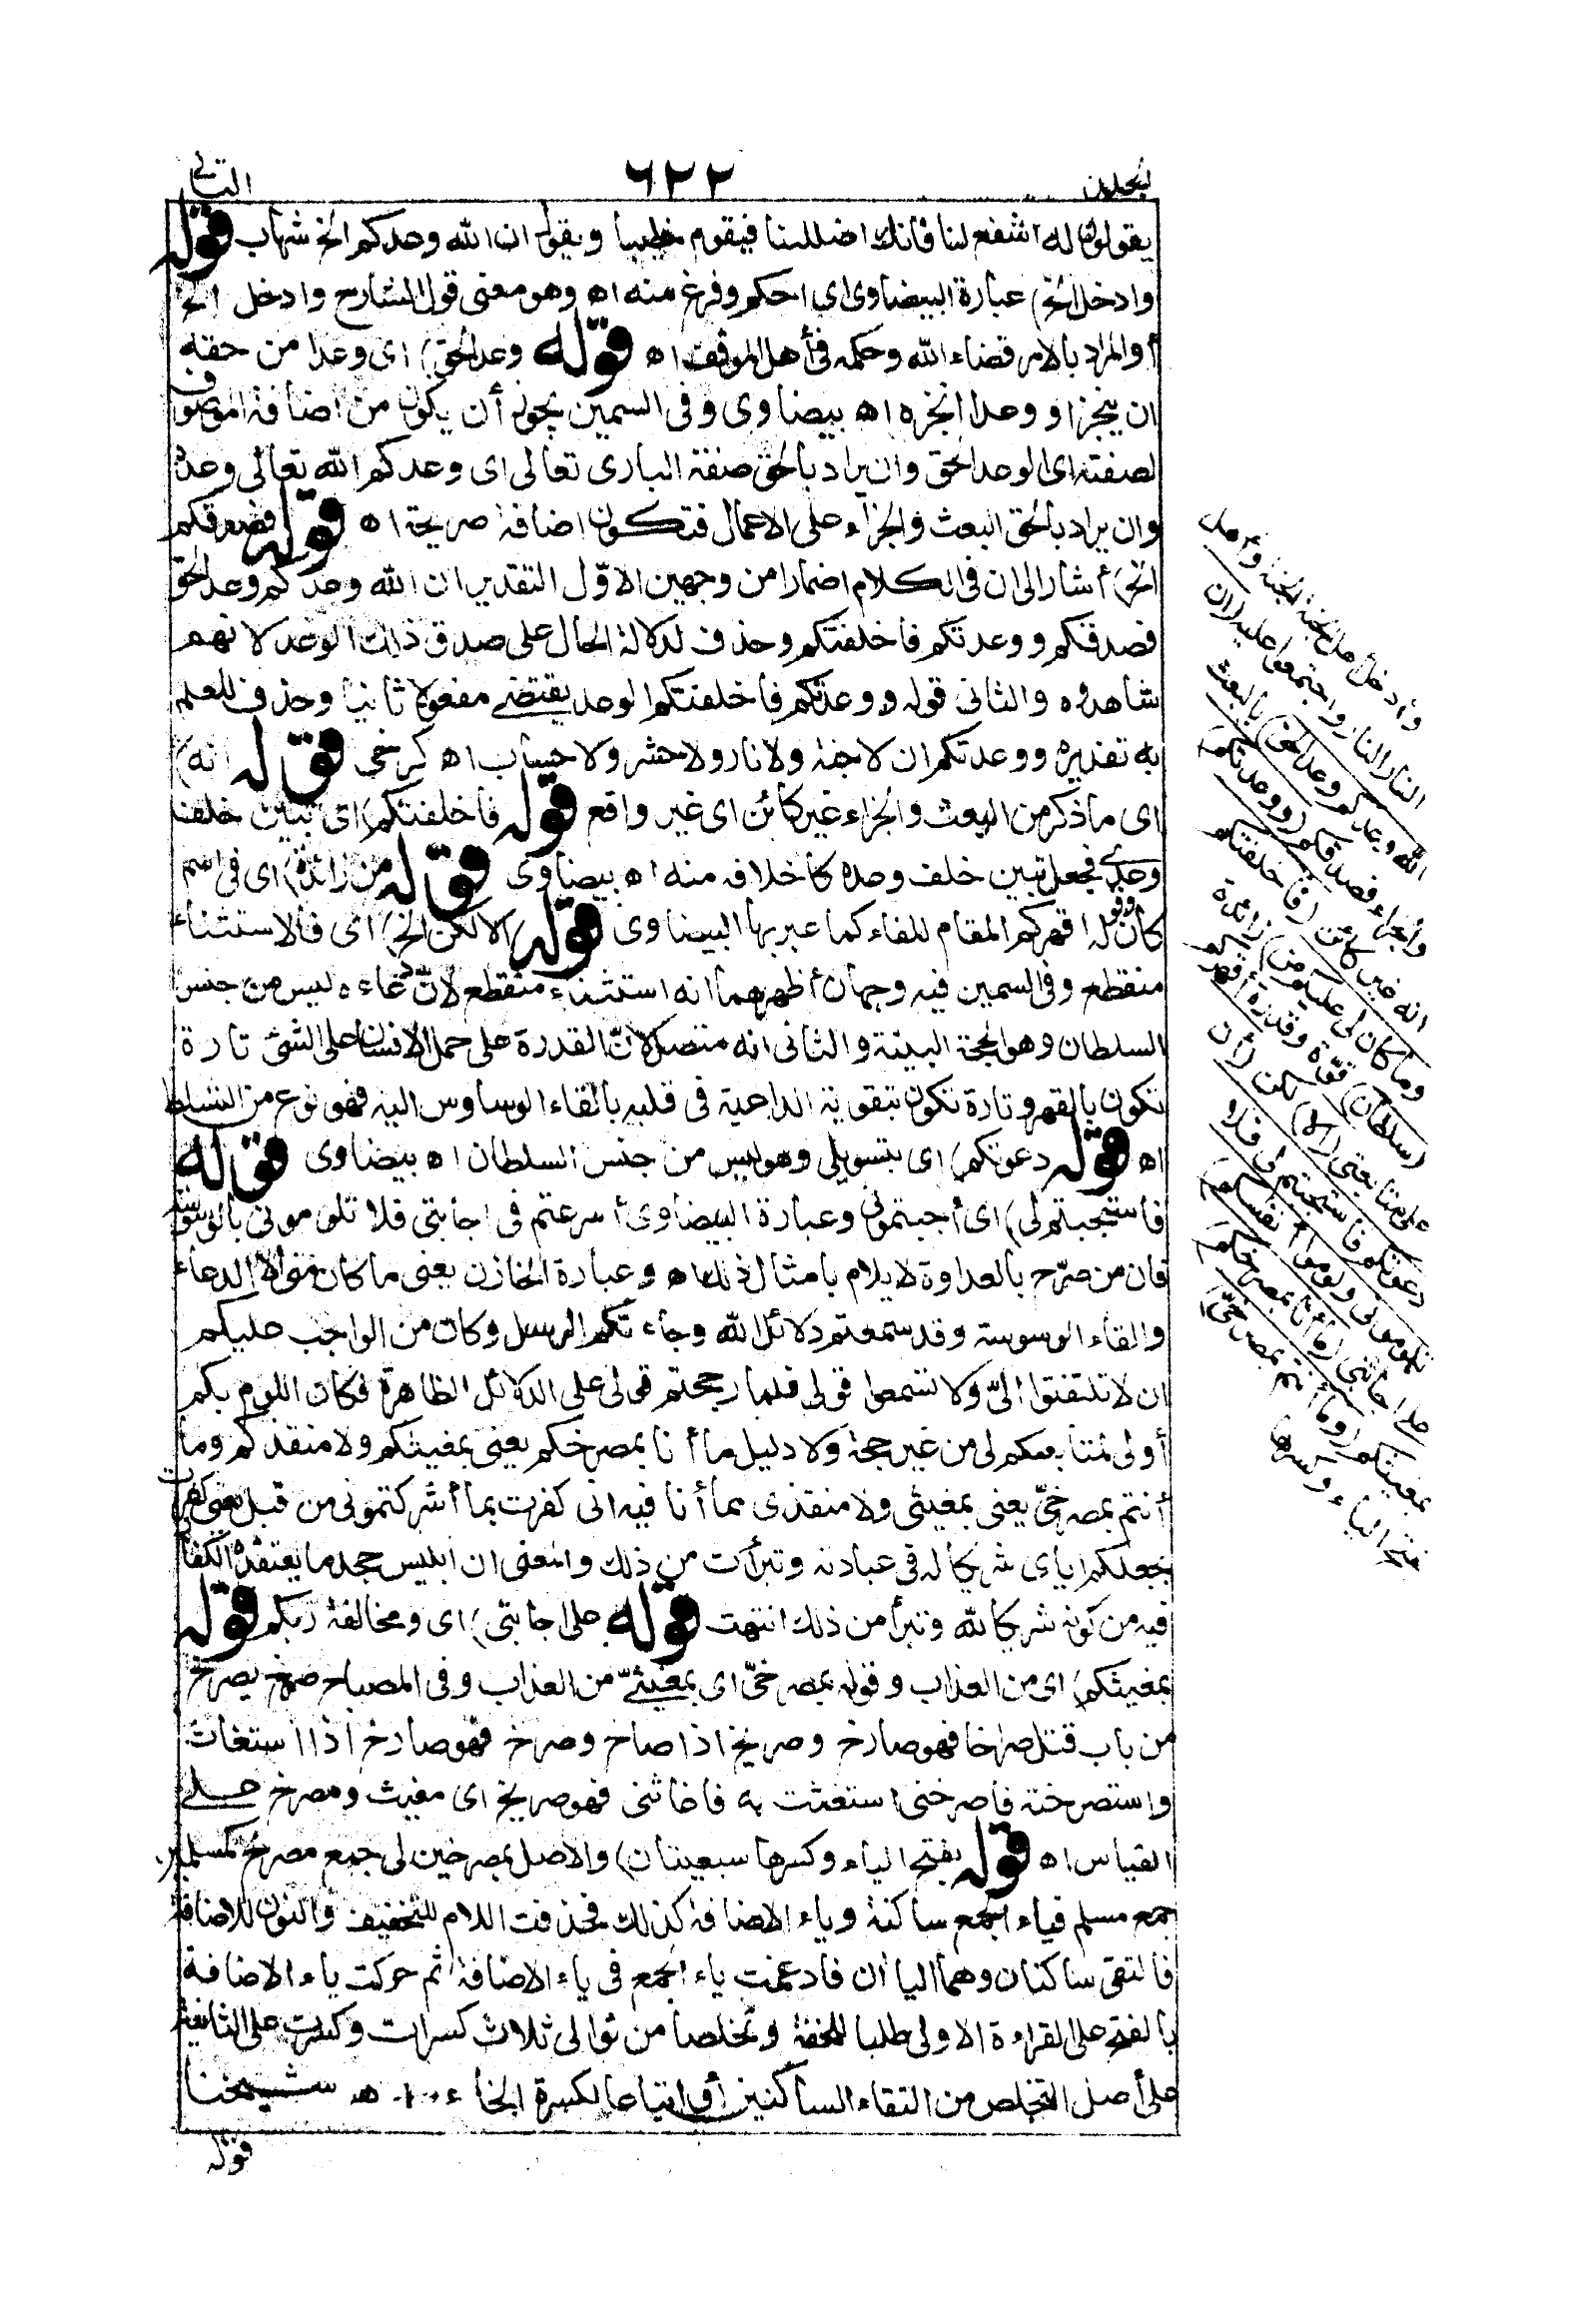 الثاني
٦٢٢
يقولون له اشفع لنا فانك اضللتنا فيقوم خطيبا ويقول ان الله وعدكم الخ شهاب قوله
وادخل الخ) عبارة البيضاوى اى احكم وفرغ منه اه وهو معنى قول الشارح وادخل الخ
أو المراد بالامر قضاء الله وحكمه فى أهل الموقف اه قوله وعد الحق) اى وعدا من حقه
ان ينجز او وعدا انجزه اه بيضاوى وفى السمين يجوز أن يكون من اضافة الموصوف
لصفته اى الوعد الحق وان يراد بالحق صفة البارى تعالى اى وعدكم الله تعالى وعده
وان يراد بالحق البعث والجزاء على الاعمال فتكون اضافة صريحة اه قوله فصدقكم
الخ) أشار الى ان فى الكلام اضمارا من وجهين الاوّل التقدير ان الله وعدكم وعد الحق
فصدقكم ووعدتكم فاخلفتكم وحذف لدلالة الحال على صدق ذلك الوعد لانهم
شاهدوه والثانى قوله ووعدتكم فاخلفتكم الوعد يقتضى مفعولا ثانيا وحذف للعلم
به تقديره ووعدتكم ان لا جنة ولا نار ولا حشر ولا حساب اه كرخى قوله انه)
اى ما ذكر من البعث والجزاء غير كائن اى غير واقع قوله فاخلفتكم) اى تبين خلف
وعدى فجعل تبين خلف وعده كاخلافه منه اه بيضاوى قوله من زائدة) اى فى اسم
كان وقوله اقهركم المقام للفاء كما عبر بها البيضاوى قوله الا لكن الخ) اى فالاستثناء
منقطع وفى السمين فيه وجهان أظهرهما انه استثناء منقطع لانّ دعاءه ليس من جنس
السلطان وهو الحجة البينة والثانى انه متصل لانّ القدرة على حمل الانسان على الشئ تارة
تكون بالقهر وتارة تكون بتقوية الداعية فى قلبه بالقاء الوساوس اليه فهو نوع من التسلط
اه قوله دعوتكم) اى بتسويلى وهو ليس من جنس السلطان اه بيضاوى قوله
فاستجبتم لى) اى أجبتمونى وعبارة البيضاوى أسرعتم فى اجابتى فلا تلومونى بالوسوسة
فان من صرّح بالعداوة لا يلام بامثال ذلك اه وعبارة الخازن يعنى ما كان منى الا الدعاء
والقاء الوسوسة وقد سمعتم دلائل الله وجاءتكم الرسل وكان من الواجب عليكم
ان لا تلتفتوا الىّ ولا تسمعوا قولى فلما رجحتم قولى على الدلائل الظاهرة فكان اللوم بكم
أولى بمتابعتكم لى من غير حجة ولا دليل ما أنا بمصرخكم يعنى بمغيثكم ولا منقذكم وما
أنتم بمصرخىّ يعنى بمغيثى ولا منقذى مما أنا فيه انى كفرت بما أشركتمونى من قبل يعنى كفرت
بجعلكم اياى شريكا له فى عبادته وتبرأت من ذلك والمعنى ان ابليس جحد ما يعتقده الكفار
فيه من كونه شريكا لله وتبرأ من ذلك انتهت قوله على اجابتى) اى ومخالفة ربكم قوله
بمغيثكم) اى من العذاب وقوله بمصرخىّ اى بمغيثىّ من العذاب وفى المصباح صرخ يصرخ
من باب قتل صراخا فهو صارخ وصريخ اذا صاح وصرخ فهو صارخ اذا استغاث
واستصرخته فاصرخنى استغثت به فاغاثنى فهو صريخ اى مغيث ومصرخ على
القياس اه قوله بفتح الياء وكسرها سبعيتان) والاصل بمصرخين لى جمع مصرخ كمسلمين
جمع مسلم فياء الجمع ساكنة وياء الاضافة كذلك فحذفت اللام للتخفيف والنون للاضافة
فالتقى ساكنان وهما اليا ان فادغمت ياء الجمع فى ياء الاضافة ثم حركت ياء الاضافة
بالفتح على القراءة الاولى طلبا للخفة وتخلصا من توالى ثلاث كسرات وكسرت على الثانية
على أصل التخلص من التقاء الساكنين أو اتباعا لكسرة الخاء اه شيخنا
قوله
وأدخل أهل الجنة الجنة وأهل
النار النار واجتمعوا عليه (ان
الله وعدكم وعد الحق) بالبعث
والجزاء فصدقكم (ووعدتكم)
انه غير كائن (فاخلفتكم
وما كان لى عليكم من) زائدة
(سلطان) قوّة وقدرة أقهركم
على متابعتى (الا) لكن (أن
دعوتكم فاستجبتم لى فلا
تلومونى ولوموا أنفسكم)
على اجابتى (ما أنا بمصرخكم)
بمغيثكم (وما أنتم بمصرخىّ)
بفتح الياء وكسرها